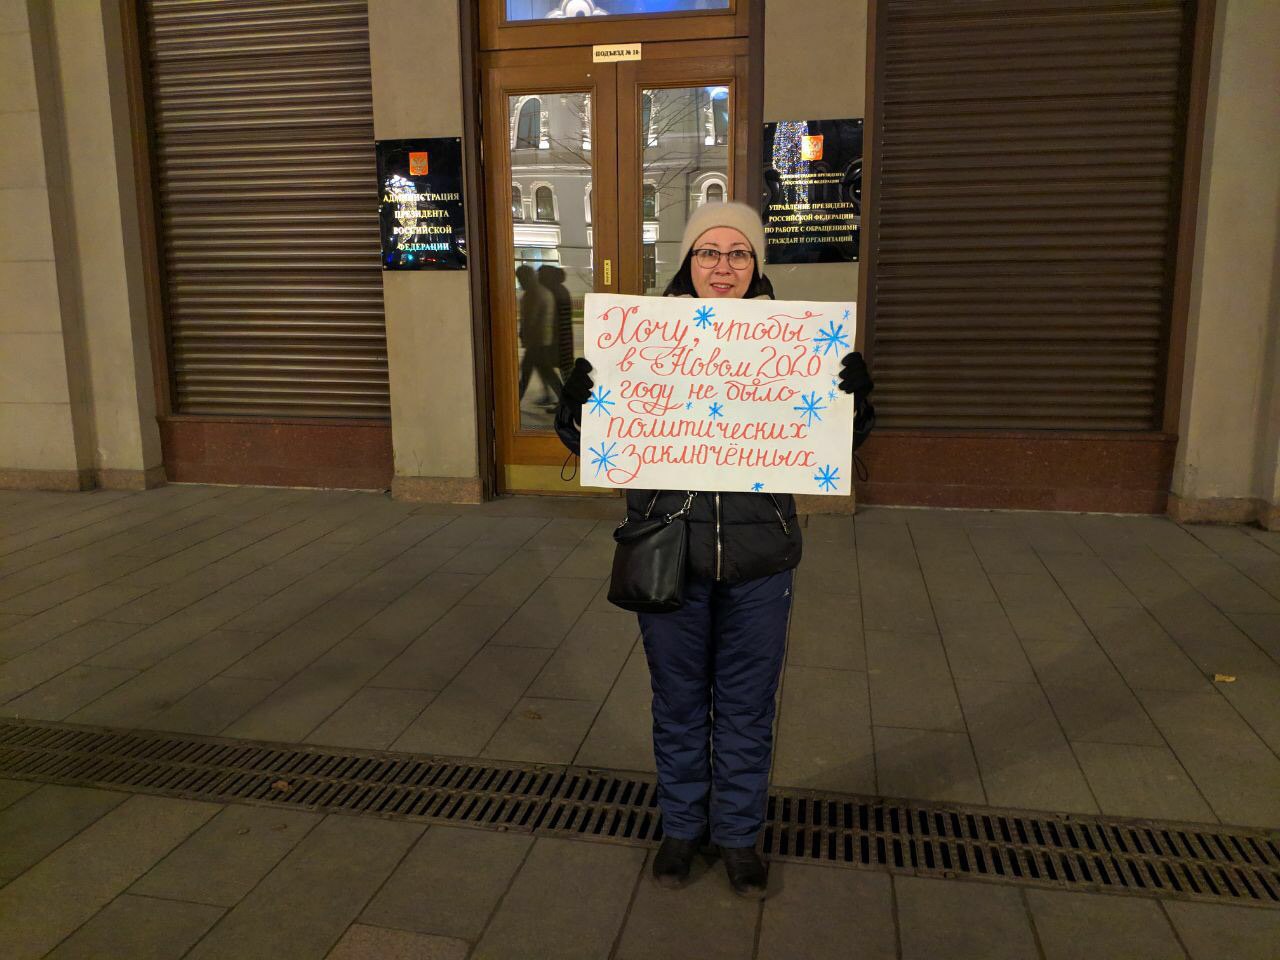 ПОДЪЕЗД № 10
АДМИНИСТРАЦИЯ
ПРЕЗИДЕНТА
РОССИЙСКОЙ
ФЕДЕРАЦИИ
АДМИНИСТРАЦИЯ ПРЕЗИДЕНТА
РОССИЙСКОЙ ФЕДЕРАЦИИ
УПРАВЛЕНИЕ ПРЕЗИДЕНТА
РОССИЙСКОЙ ФЕДЕРАЦИИ
ПО РАБОТЕ С ОБРАЩЕНИЯМИ
ГРАЖДАН И ОРГАНИЗАЦИЙ
Хочу, чтобы
в Новом 2020
году не было
политических
заключённых